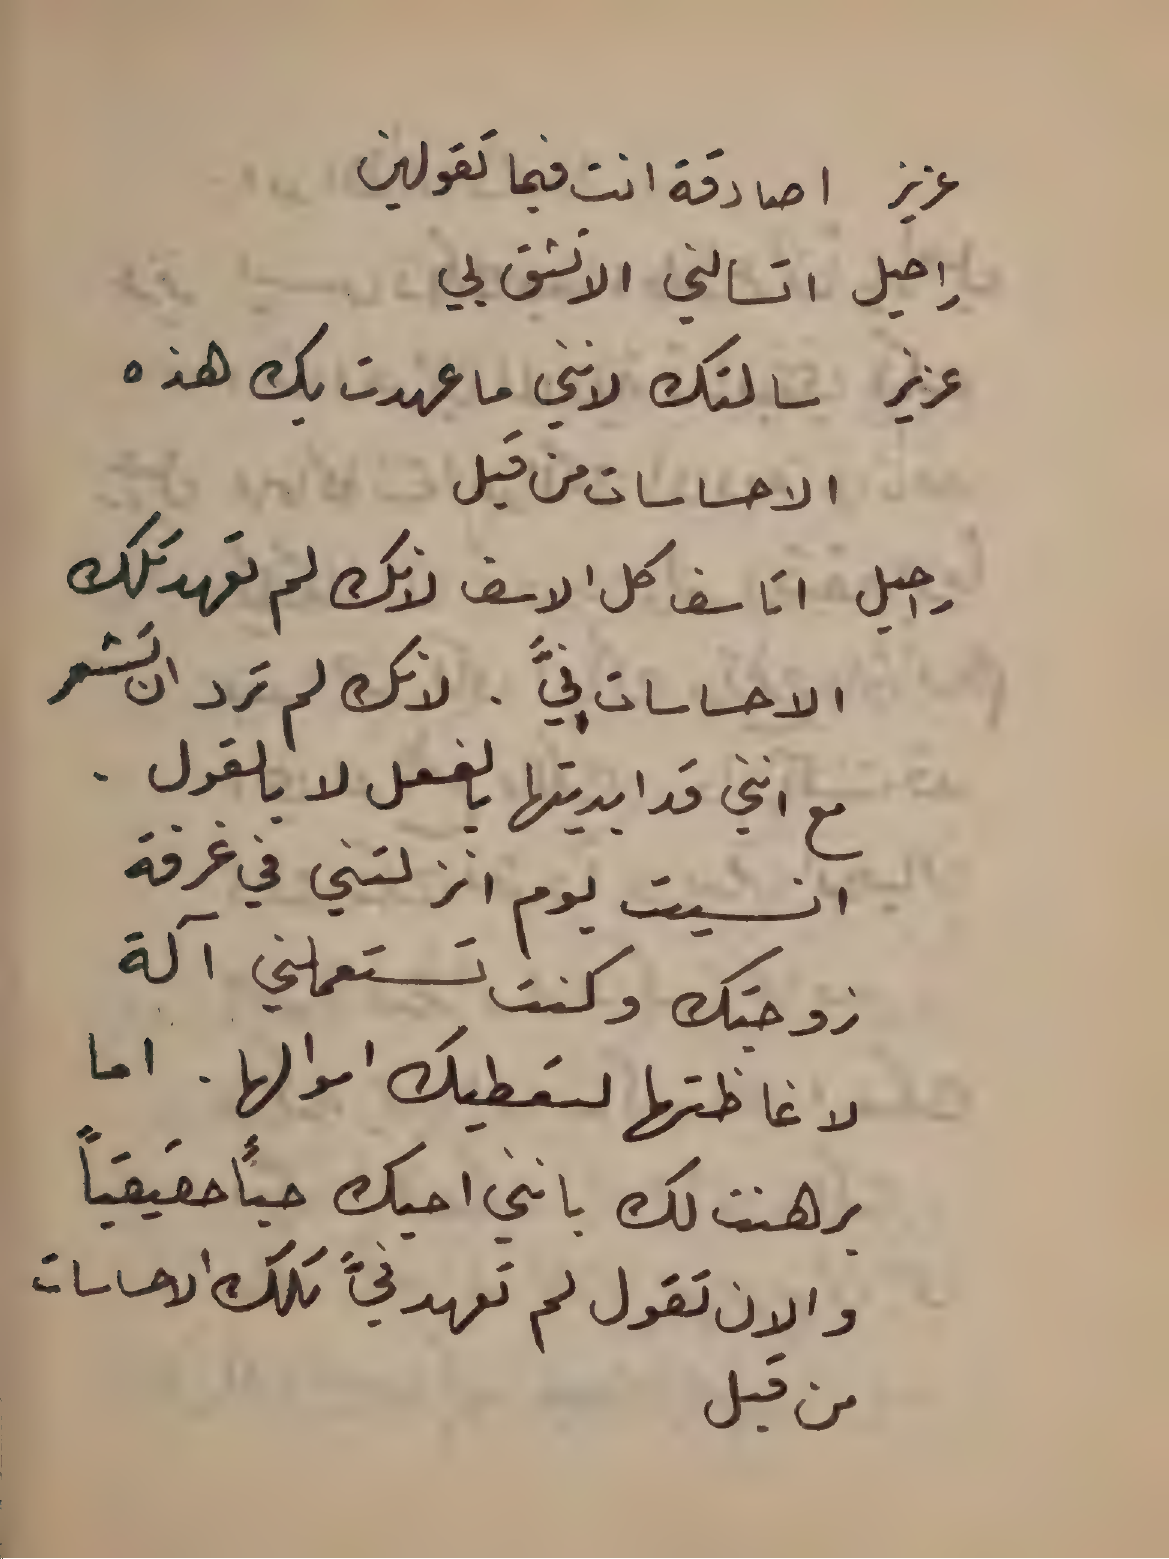 عزيز اصادقة انت فيما تقولين
راحيل اتسالني الا تثق بي
عزيز سالتك لانني ما عهدت بك هذه
الاحساسات من قبل
راحيل اتاسف كل الاسف لانك لم تعهد تلك
الاحساسات فيَّ . لانك لم ترد ان تشعر
مع انني قد ابديتها بالفعل لا بالقول .
انسيت يوم انزلتني في غرفة
زوجتك وكنت تستعملني آلة
لاغاظتها لتعطيك اموالها . اما
برهنت لك بانني احبك حباً حقيقياً
والان تقول لم تعهد فيَّ تلك الاحساسات
من قبل